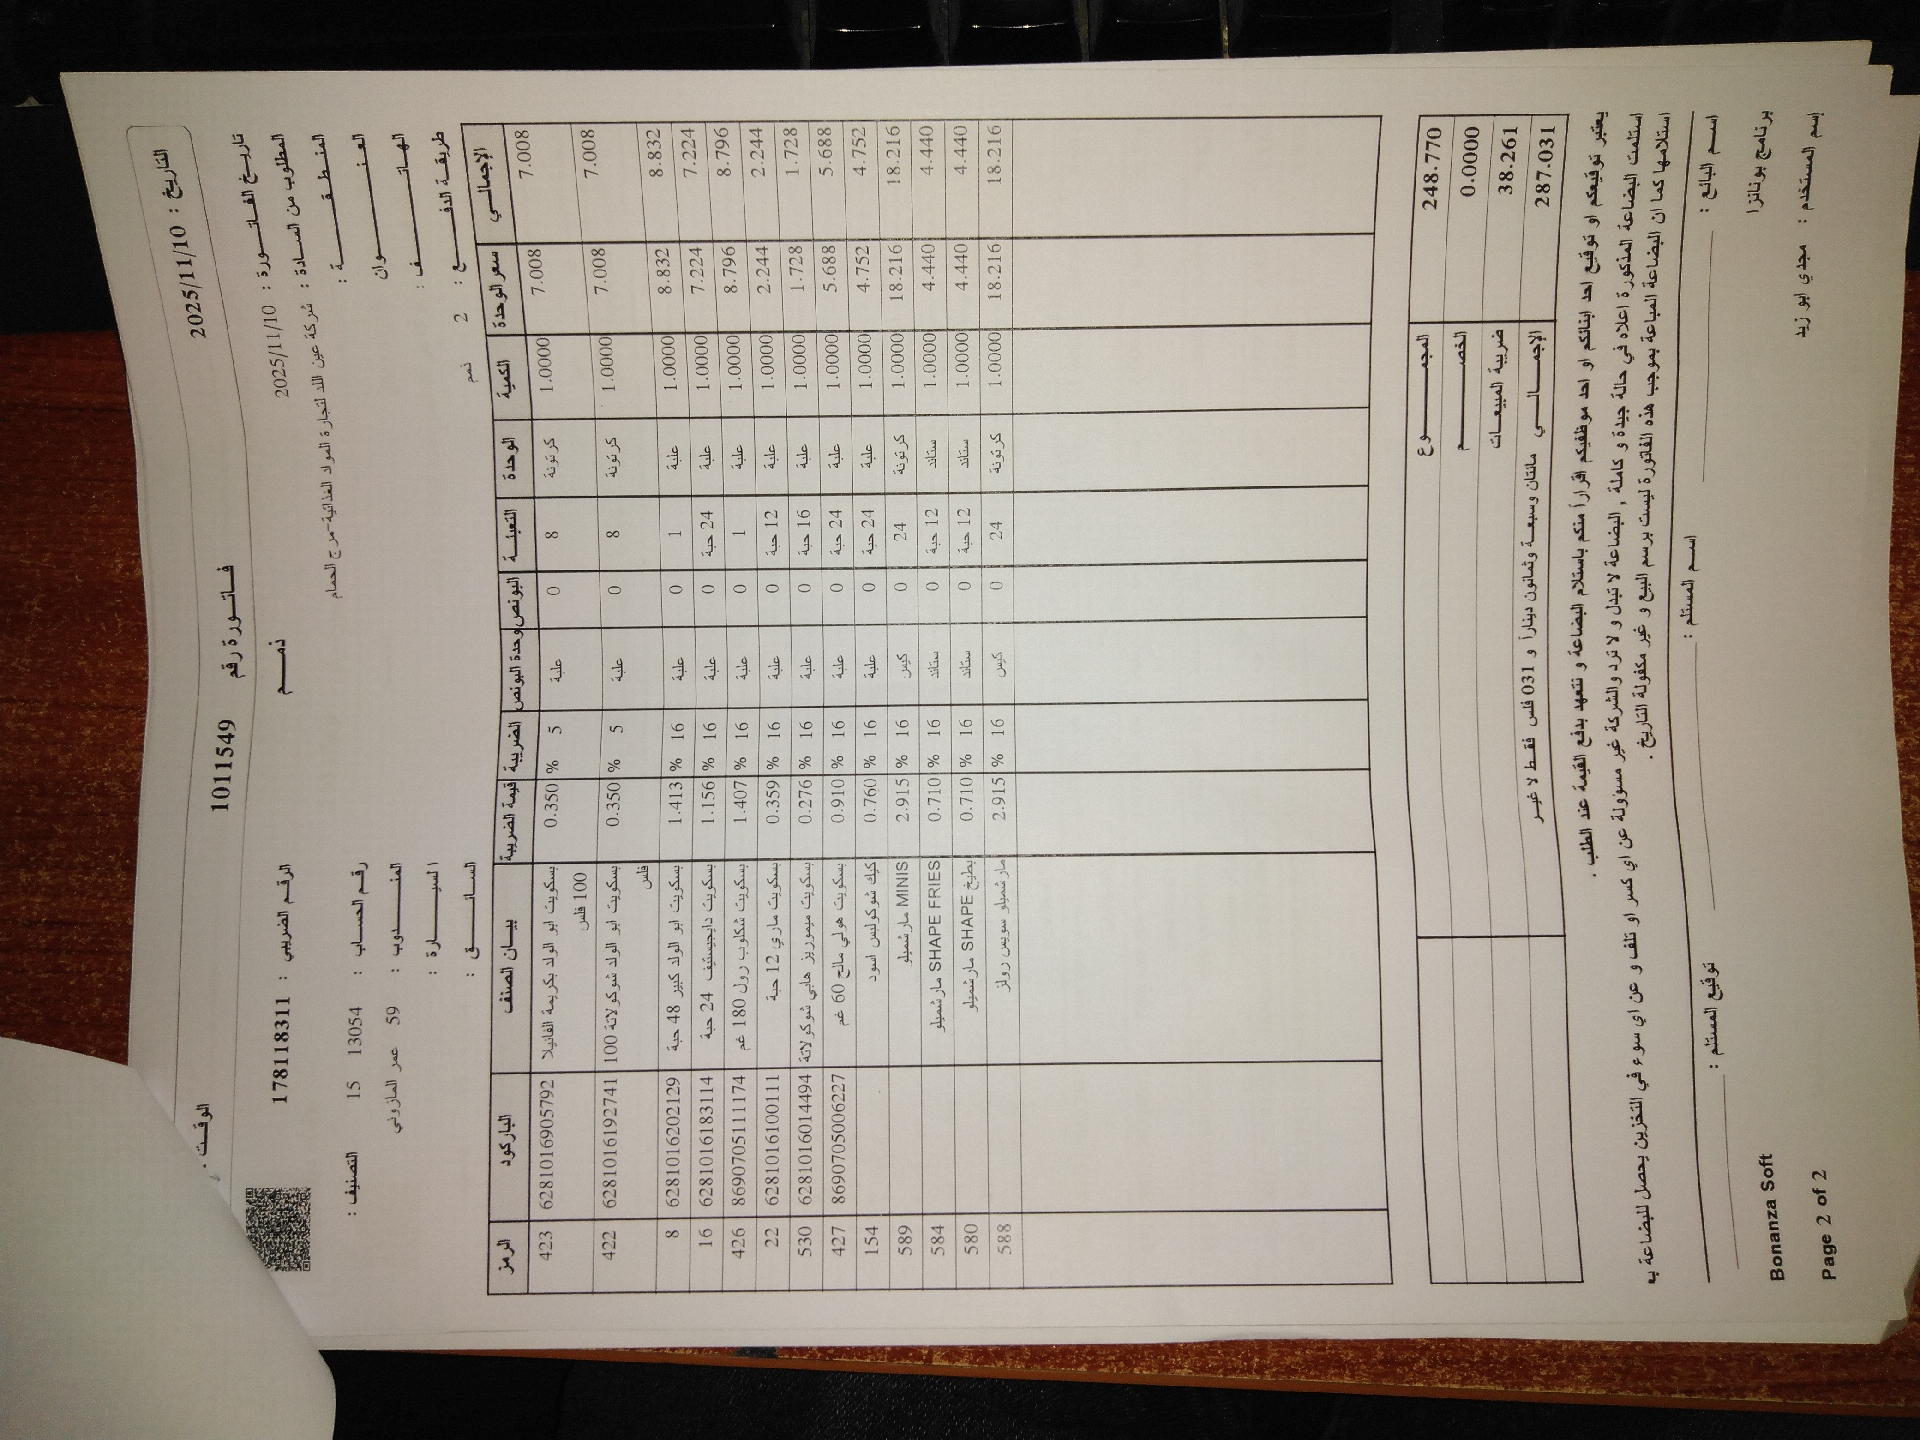 التاريخ : 2025/11/10
الوقت
فاتورة رقم 10111549
تاريخ الفاتورة : 2025/11/10
ذمم
الرقم الضريبي : 178118311
المطلوب من السادة : شركة عين اللد لتجارة المواد الغذائية-مرج الحمام
المنطقة :
رقم الحساب : 13054 15
التصنيف :
العنوان
المندوب : 59 عمر المازوني
الهاتف :
السيارة :
طريقة الدفع : 2 ذمم
السائق :
الرمز الباركود بيان الصنف قيمة الضريبة الضريبة وحدة البونص البونص التعبئة الوحدة الكمية سعر الوحدة الإجمالي
423 6281016905792 بسكويت ابو الولد بكريمة الفانيلا 100 فلس 0.350 % 5 علبة 0 8 كرتونة 1.0000 7.008 7.008
422 6281016192741 بسكويت ابو الولد شوكولاتة 100 فلس 0.350 % 5 علبة 0 8 كرتونة 1.0000 7.008 7.008
8 6281016202129 بسكويت ابو الولد كبير 48 حبة 1.413 % 16 علبة 0 1 علبة 1.0000 8.832 8.832
16 6281016183114 بسكويت دايجستيف 24 حبة 1.156 % 16 علبة 0 24 حبة علبة 1.0000 7.224 7.224
426 8690705111174 بسكويت شكلوب رول 180 غم 1.407 % 16 علبة 0 1 علبة 1.0000 8.796 8.796
22 6281016100111 بسكويت ماري 12 حبة 0.359 % 16 علبة 0 12 حبة علبة 1.0000 2.244 2.244
530 6281016014494 بسكويت ميموريز هابي شوكولاتة 0.276 % 16 علبة 0 16 حبة علبة 1.0000 1.728 1.728
427 8690705006227 بسكويت هولي مالح 60 غم 0.910 % 16 علبة 0 24 حبة علبة 1.0000 5.688 5.688
154 كيك شوكوليس اسود 0.760 % 16 علبة 0 24 حبة علبة 1.0000 4.752 4.752
589 مارشميلو MINIS 2.915 % 16 كيس 0 24 كرتونة 1.0000 18.216 18.216
584 مارشميلو SHAPE FRIES 0.710 % 16 ستاند 0 12 حبة ستاند 1.0000 4.440 4.440
580 مارشميلو SHAPE بطيخ 0.710 % 16 ستاند 0 12 حبة ستاند 1.0000 4.440 4.440
588 مارشميلو سويس رولز 2.915 % 16 كيس 0 24 كرتونة 1.0000 18.216 18.216
المجموع 248.770
الخصم 0.0000
ضريبة المبيعات 38.261
الإجمالي مائتان وسبعة وثمانون ديناراً و 031 فلس فقط لا غير 287.031
يعتبر توقيعكم او توقيع احد ابنائكم او احد موظفيكم اقراراً منكم باستلام البضاعة و نتعهد بدفع القيمة عند الطلب .
استلمت البضاعة المذكورة اعلاه في حالة جيدة و كاملة , البضاعة لا تبدل و لا ترد والشركة غير مسؤولة عن اي كسر او تلف و عن اي سوء في التخزين يحصل للبضاعة ب
استلامها كما ان البضاعة المباعة بموجب هذه الفاتورة ليست برسم البيع و غير مكفولة التاريخ .
اسم البائع :
اسم المستلم :
توقيع المستلم :
برنامج بونانزا
Bonanza Soft
إسم المستخدم : مجدي ابو زيد
Page 2 of 2